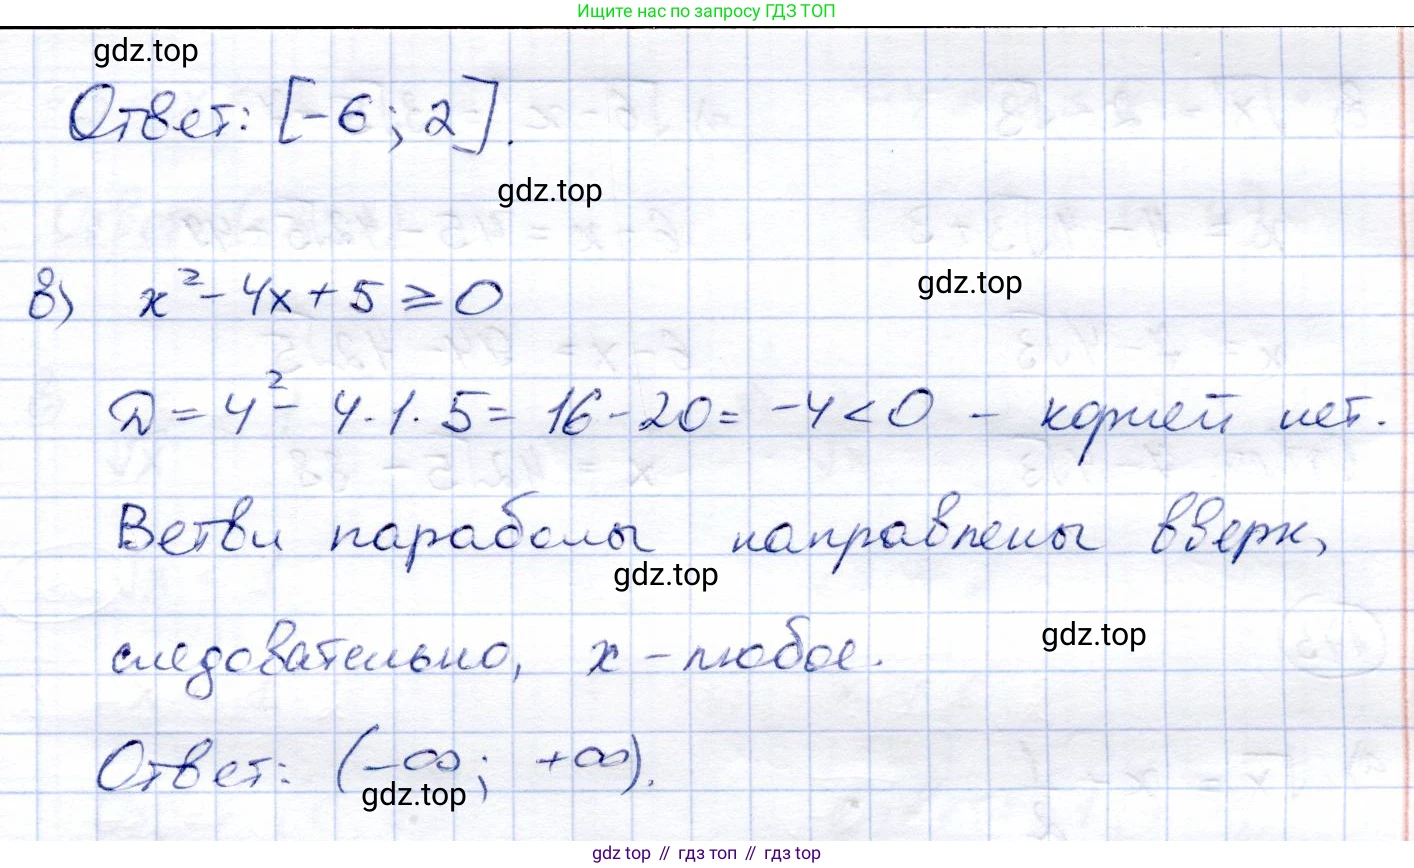 Ищите нас по запросу ГДЗ ТОП
gdz.top
Ответ: [-6; 2].
gdz.top
в) x² - 4x + 5 ≥ 0
gdz.top
D = 4² - 4·1·5 = 16 - 20 = -4 < 0 - корней нет.
Ветви параболы направлены вверх,
gdz.top
следовательно, x - любое.
gdz.top
Ответ: (-∞; +∞).
gdz.top
gdz top // гдз топ // gdz top